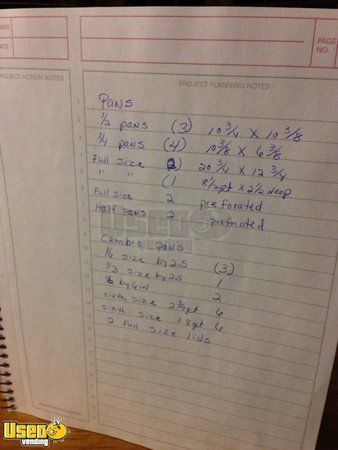 NAME
DATE
PAGE NO.
PROJECT ACTION NOTES
PROJECT PLANNING NOTES
Pans
1/2 pans (3) 10 3/4 X 10 3/8
1/4 pans (4) 10 3/8 X 6 3/8
Full Size (2) 20 3/4 X 12 3/4
" " (1 8 1/2 qt X 2 1/2 deep
Full Size 2 preforated
Half Pans 2 preforated
Cambie Pans
size by 2.5 (3)
1/3 size by 2.5 1
by 6 in 2
sixth size 2 3/4 qt 6
sixth size 1.8 qt 6
2 Full size lids
USED vending